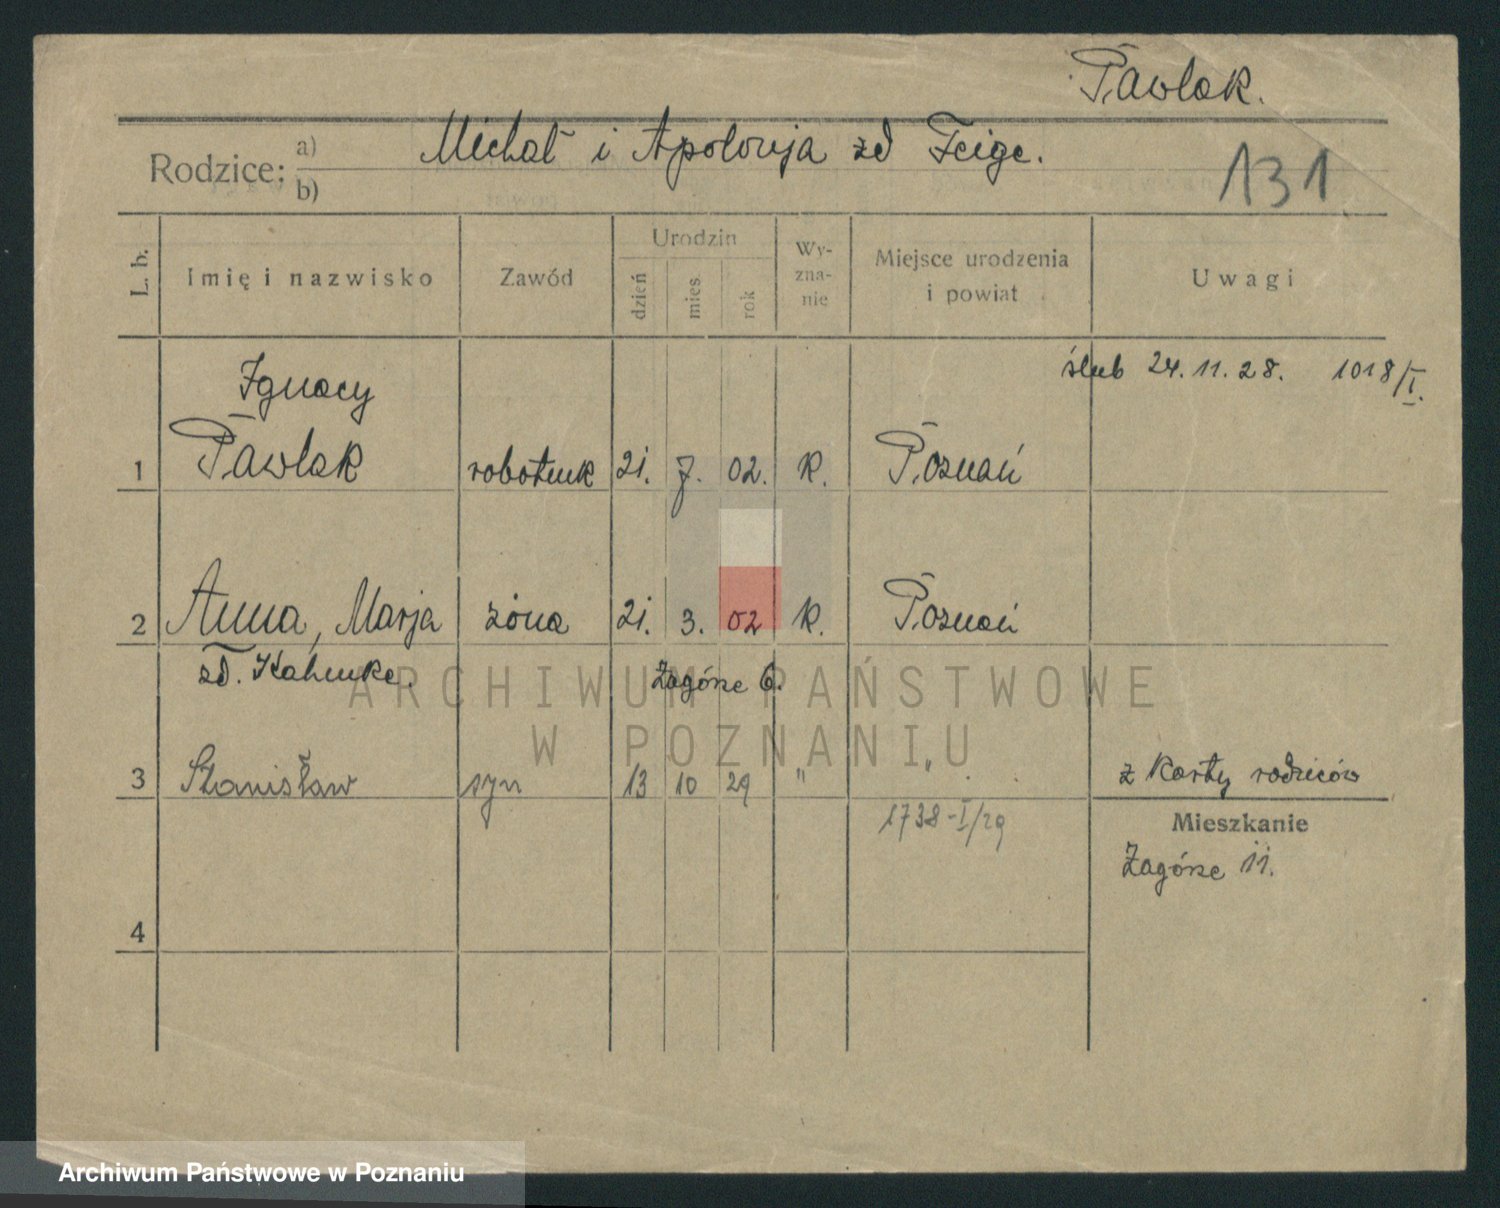 Pawlak.
Rodzice: a) b) Michał i Apolonja zd Feige.
131
L. b. Imię i nazwisko Zawód Urodzin dzień mies. rok Wy-zna-nie Miejsce urodzenia i powiat Uwagi
ślub 24. 11. 28. 1018/I.
Ignacy
1 Pawlak robotnik 21. 7. 02. k. Poznań
2 Anna, Marja żona 21. 3. 02 k. Poznań
zd. Zagórze 6.
ARCHIWUM PAŃSTWOWE
W POZNANIU
3 Stanisław syn 13 10 29 " " z karty rodziców
1738-I/29
Mieszkanie
Zagórze 11.
4
Archiwum Państwowe w Poznaniu